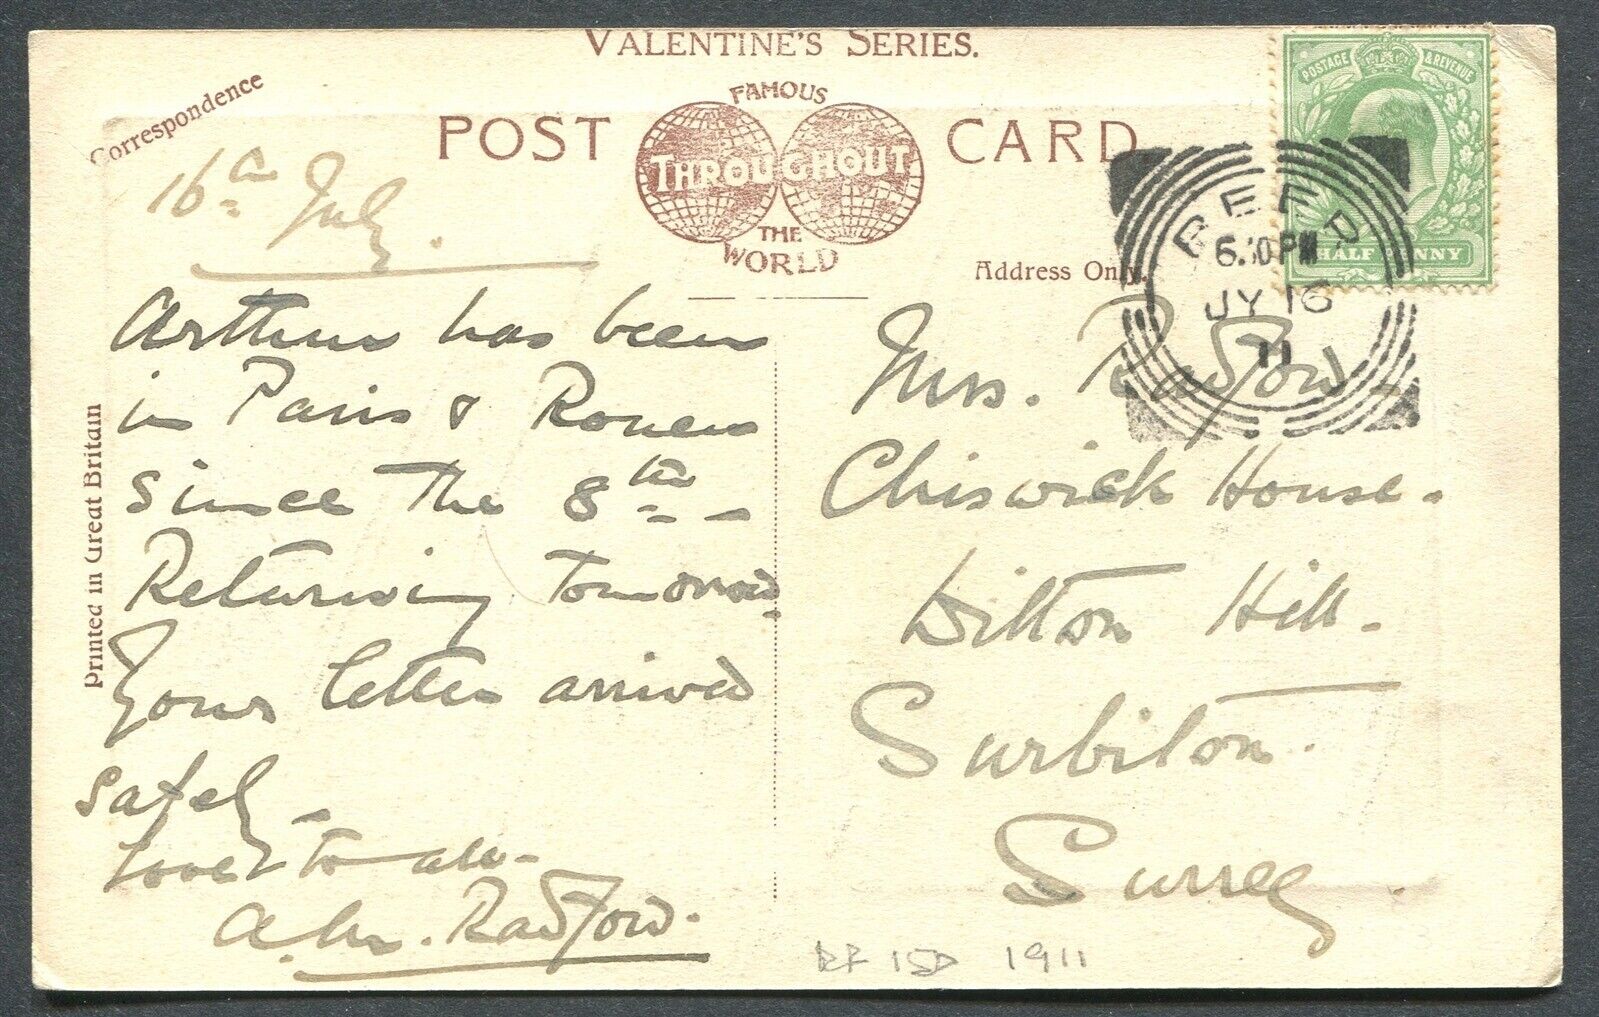 VALENTINE'S SERIES.
Correspondence
POST CARD
FAMOUS
THROUGHOUT
THE
WORLD
Address Only.
Printed in Great Britain
POSTAGE & REVENUE
HALF PENNY
BEER
6.30 PM
JY 16
11
16th July.
Arthur has been
in Paris & Rouen
since the 8th -
Returning tomorrow.
Your letter arrived
safely -
Love to all -
A. M. Radford.
Mrs. Radford
Chiswick House.
Ditton Hill.
Surbiton.
Surrey
1911